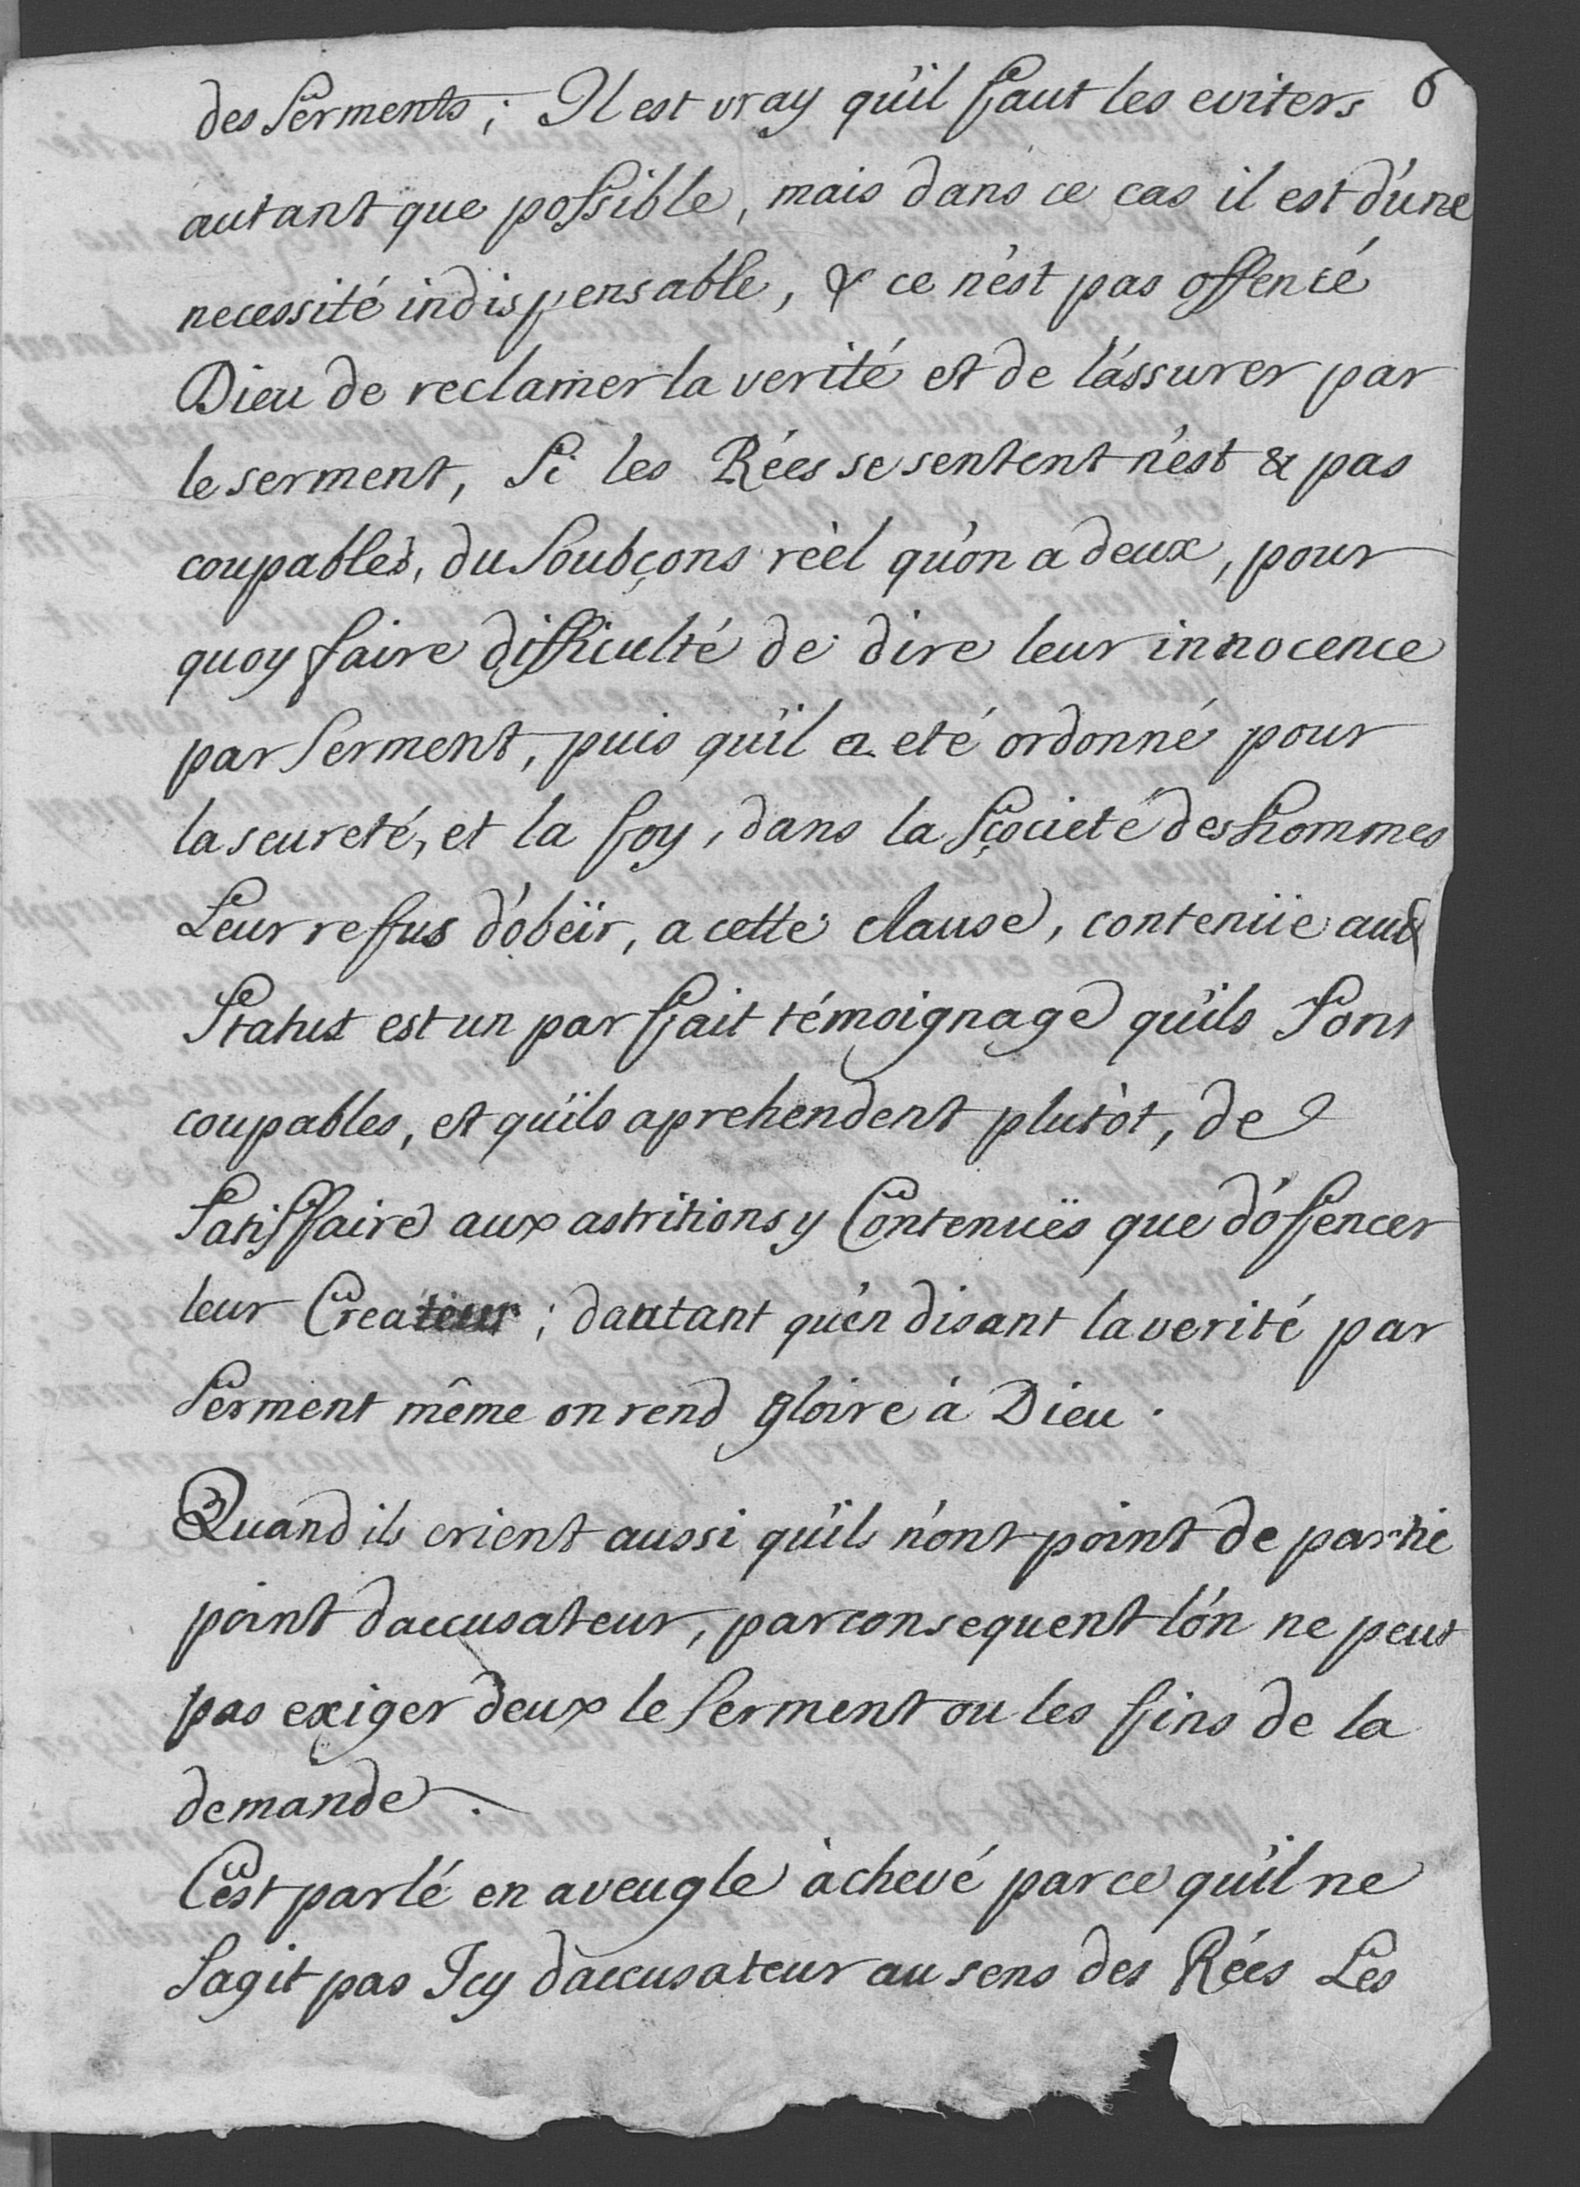 6
des Serments; Il est vray qu'il faut les eviters
autant que possible, mais dans ce cas il est d'une
necessité indispensable, & ce n'est pas offencé
Dieu de reclamer la verité et de l'assurer par
le serment, Si les Rées se sentent n'est & pas
coupables, du Soubçons réel qu'on a deux, pour
quoy faire difficulté de dire leur innocence
par Serment, puis qu'il a eté ordonné pour
la seureté, et la foy, dans la Sçocieté des hommes
Leur reffus d'obëir, a cette clause, contenüe aux
Status est un parffait témoignage qu'ils Sont
coupables, et qu'ils aprehendent plutôt, de
Satisffaire aux astritions y Contenuës que d'offencer
leur Createur; dautant qu'en disant la verité par
Serment même on rend gloire à Dieu.
Quand ils crient aussi qu'ils n'ont point de partie
point daccusateur, par consequent l'on ne peut
pas exiger deux le Serment ou les fins de la
demande.
C'est parlé en aveugle àchevé parce qu'il ne
Sagit pas Icy daccusateur au sens des Rées Les